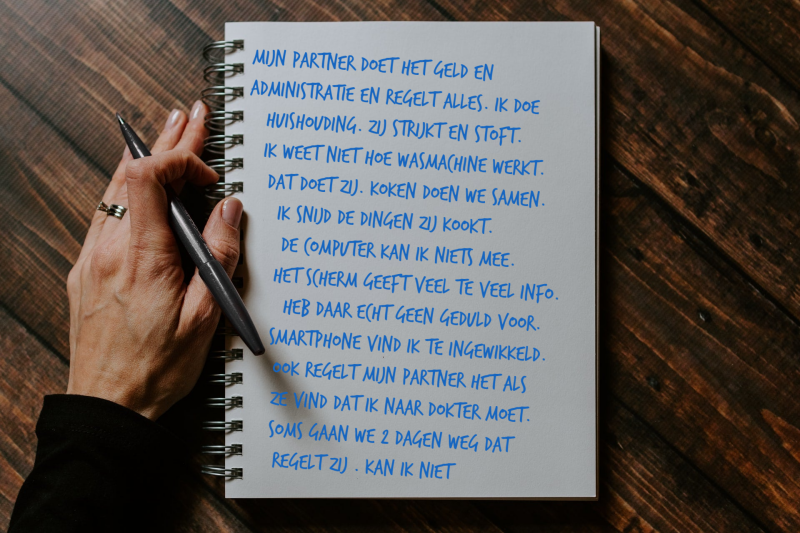 MIJN PARTNER DOET HET GELD EN
ADMINISTRATIE EN REGELT ALLES. IK DOE
HUISHOUDING. ZIJ STRIJKT EN STOFT.
IK WEET NIET HOE WASMACHINE WERKT.
DAT DOET ZIJ. KOKEN DOEN WE SAMEN.
IK SNIJD DE DINGEN ZIJ KOOKT.
DE COMPUTER KAN IK NIETS MEE.
HET SCHERM GEEFT VEEL TE VEEL INFO.
HEB DAAR ECHT GEEN GEDULD VOOR.
SMARTPHONE VIND IK TE INGEWIKKELD.
OOK REGELT MIJN PARTNER HET ALS
ZE VIND DAT IK NAAR DOKTER MOET.
SOMS GAAN WE 2 DAGEN WEG DAT
REGELT ZIJ . KAN IK NIET